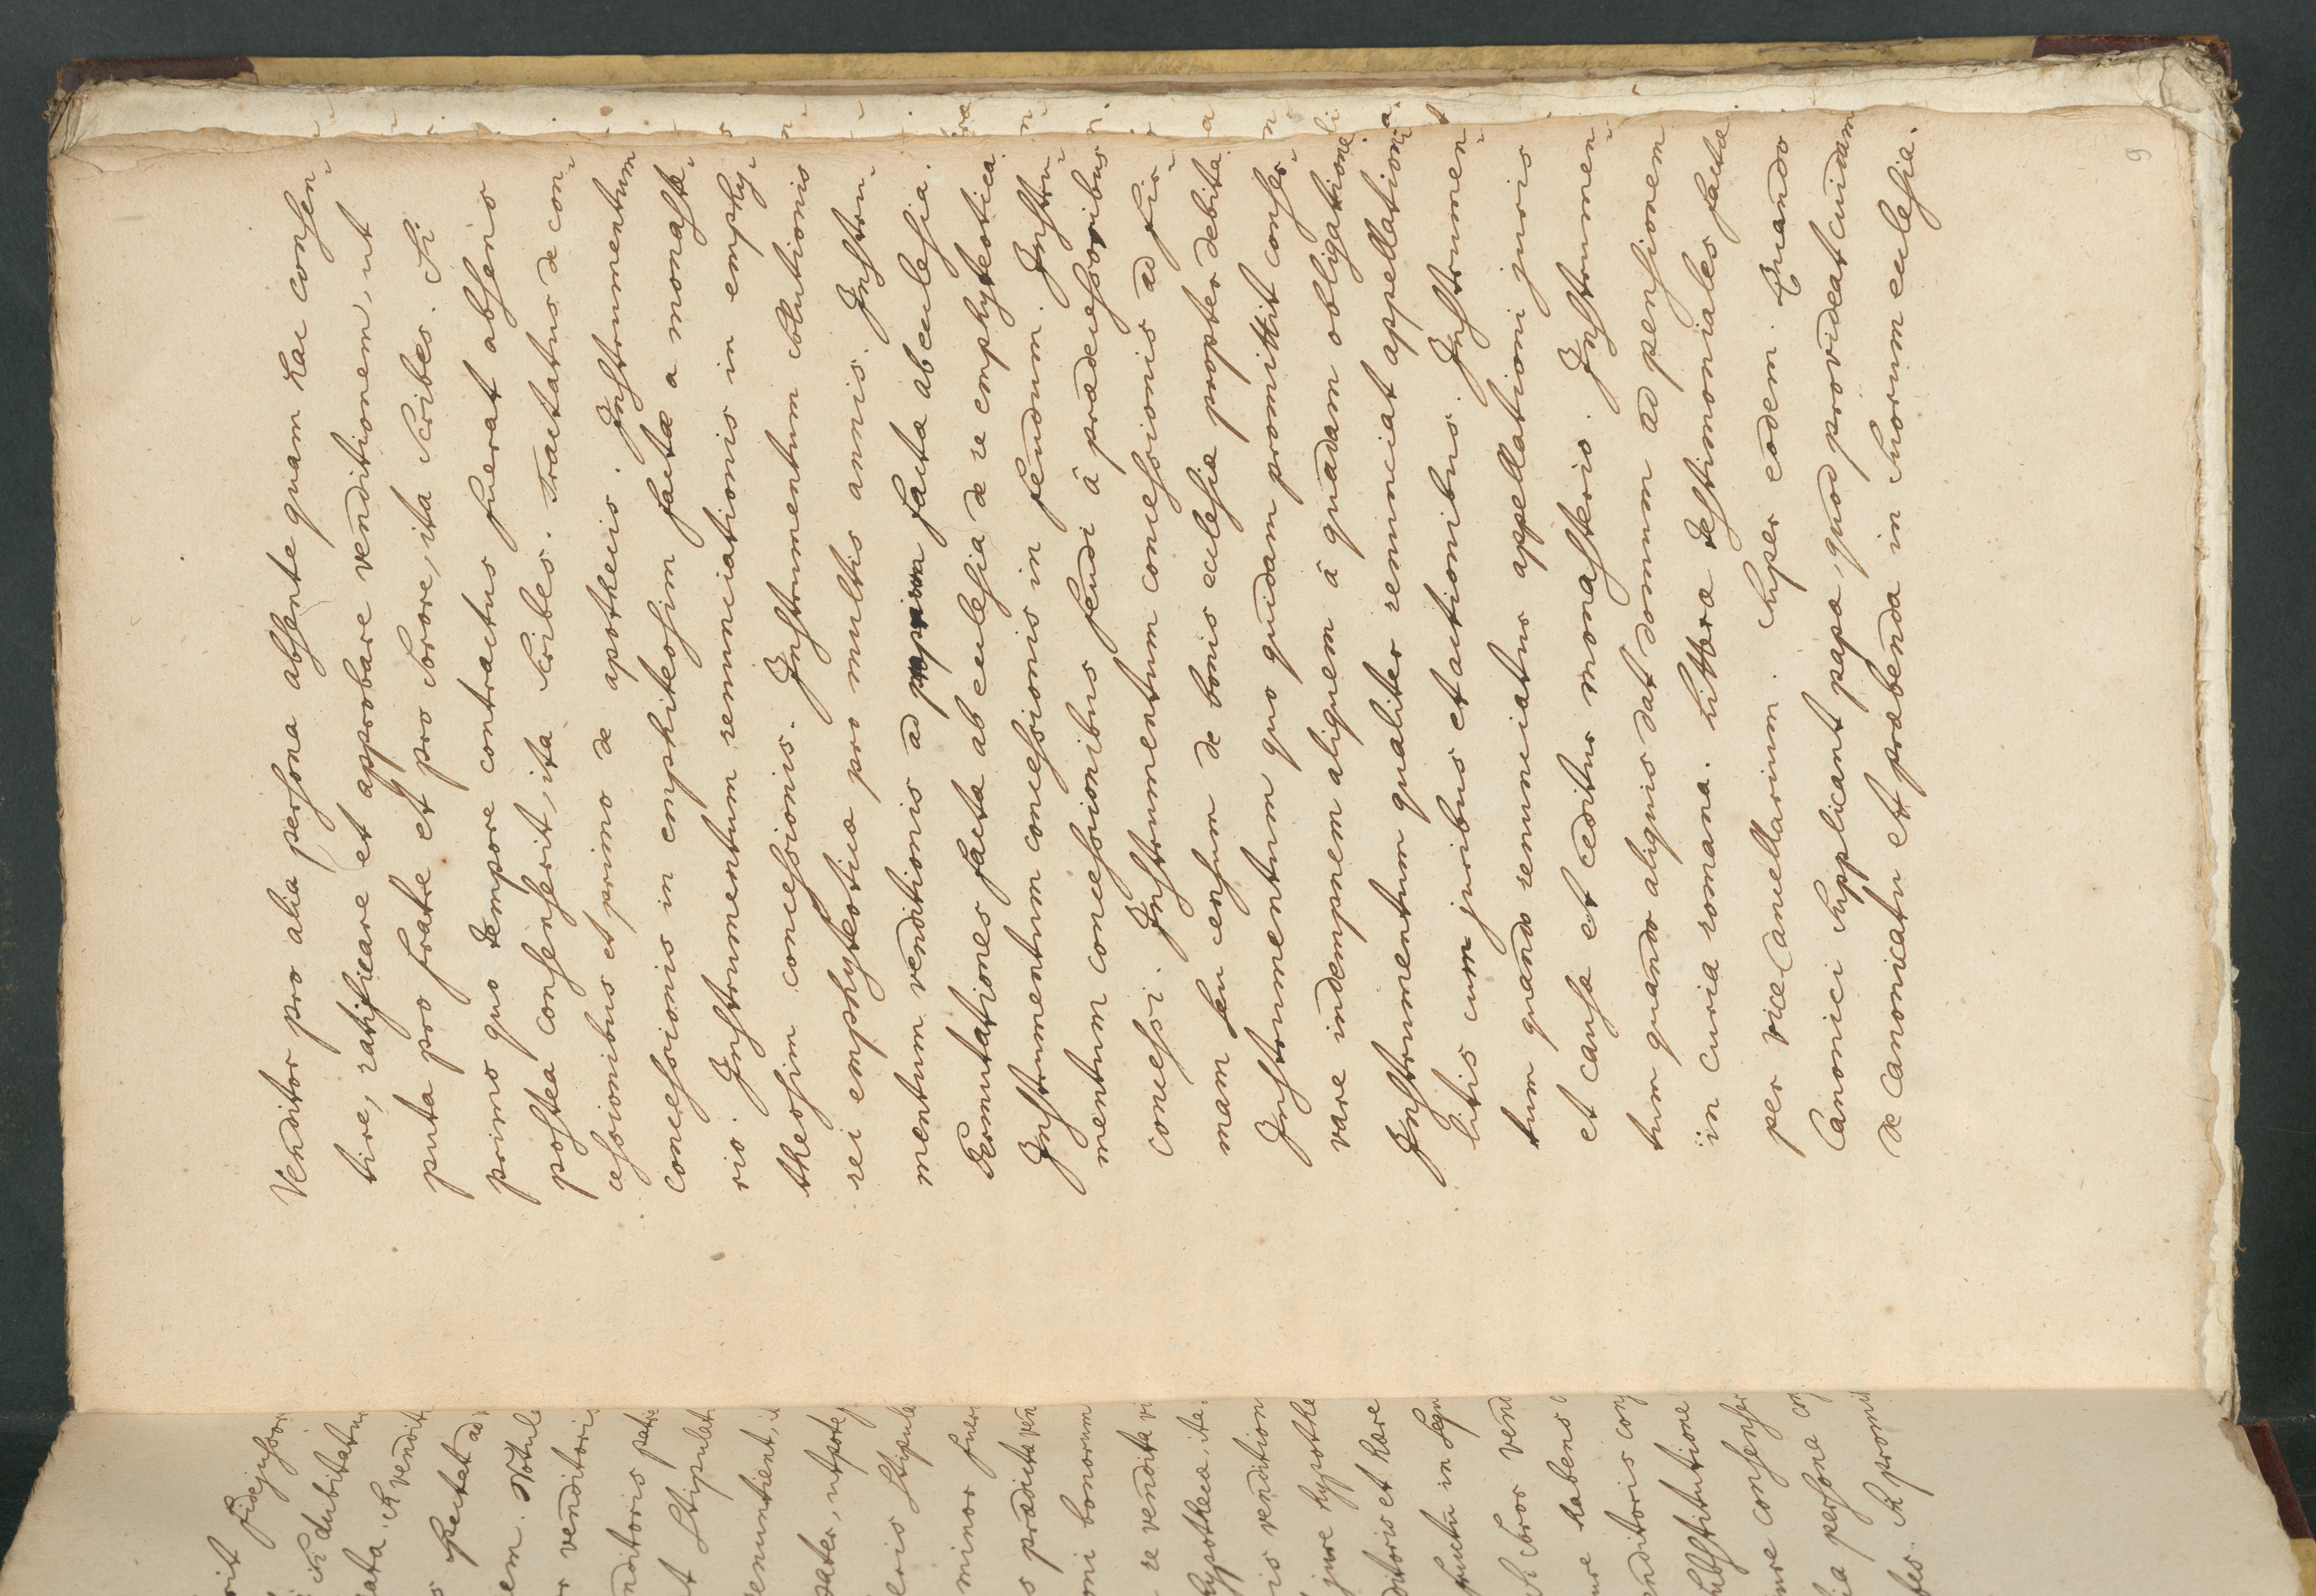 Venditor pro alia persona absente quam hac consen-
tire, ratificare et approbare venditionem, ut
puta pro fratre et pro sorore, ita scribes. Si
primo quo tempore contractus fuerat absens
postea consenserit, ita scribes. Tractatus de con-
cessionibus et primo de apothecis. Instrumentum
concessionis in emphiteosim facta a monaste-
rio. Instrumentum renunciationis in emphy-
theosim concessionis. Instrumentum solutionis
rei emphyteoticæ pro multis annis. Instru-
mentum venditionis ad facta ab ecclesia.
Permutationes facta ab ecclesia de re emphyteotica.
Instrumentum concessionis in feudum. Instru-
mentum concessionibus feudi â prædecessoribus
concessi. Instrumentum concessionis ad fir-
mam seu censum de bonis ecclesiæ propter debita.
Instrumentum quo quidam promittit conser-
vare indempnem aliquem â quadam obligatione
Instrumentum qualiter renunciat appellationi
litis cum juribus et actionibus. Instrumen-
tum quando renunciatur appellationi juris
et causa et ceditur monasterio. Instrumen-
tum quando aliquis dat domum ad pensionem
in curia romana. Litteræ testimoniales facta
per vice Cancellarium. Super eodem. Quando
Canonici supplicant papa, quod provideat cuidam
de canonicatu et præbenda in suorum ecclesia.
9
fidejussor
dubitatur
vendit
spectat ad
Notul
venditoris
venditoris
stipulat
pater, utpote
stipul
minor
prædicta ven
bonorum
re vendita
hypotheca, ita
vendition
jure hypothe
et hære
in
soror vend
habens
venditoris con
substitutione
consenser
persona
promit